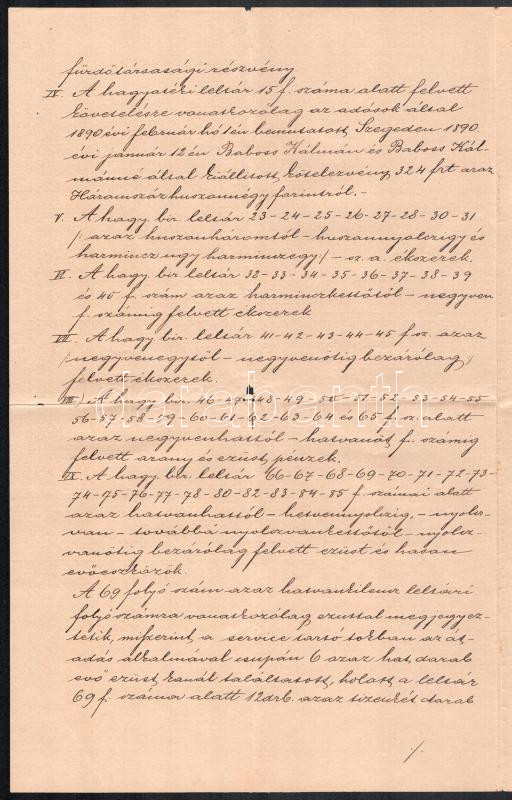 fürdőtársasági részvény
IV. A hagyatéki leltár 15 f. száma alatt felvett
követelésre vonatkozólag az adósok által
1890 évi február hó 1én bemutatott, Szegeden 1890.
évi január 12én Baboss Kálmán és Baboss Kál-
mánné által kiállított, kötelezvény 324 frt azaz
Háromszázhuszonnégy forintról.-
V. A hagy. bir. leltár 23-24-25-26-27-28-30-31
/: azaz huszonháromtól - huszonnyolczig és
harmincz ugy harminczegy /- sz. a. ékszerek.
VI. A hagy. bir. leltár 32-33-34-35-36-37-38-39
és 40 f. szám azaz harminczkettőtől - negyven
f. számig felvett ékszerek
VII. A hagy. bir. leltár 41-42-43-44-45 f sz. azaz
/:negyvenegytől - negyvenötig bezárólag/
felvett ékszerek.
VIII/ A hagy. bir. 46-47-48-49-51-52-53-54-55
56-57-58-59-60-61-62-63-64 és 65 f. sz. alatt
azaz negyvenhattól - hatvanöt, f. számig
felvett arany és ezüst, pénzek.
IX. A hagy. bir. leltár 66-67-68-69-70-71-72-73-
74-75-76-77-78-80-82-83-84-85 f. számai alatt
azaz hatvanhattól - hetvennyolczig, - nyolcz-
van - továbbá nyolczvankettőtől - nyolcz-
vanötig bezárólag felvett ezüst és hason
evőeszközök.
A 69 folyó szám azaz hatvankilencz leltári
folyó számra vonatkozólag ezuttal megjegyez-
tetik, miszerint, a service tartó tokban az át-
adás alkalmával csupán 6 azaz hat, darab
evő ezüst, kanál találtatott, holott, a leltár
69 f. száma alatt 12 drb. azaz tizenkét darab
./.
darabanth